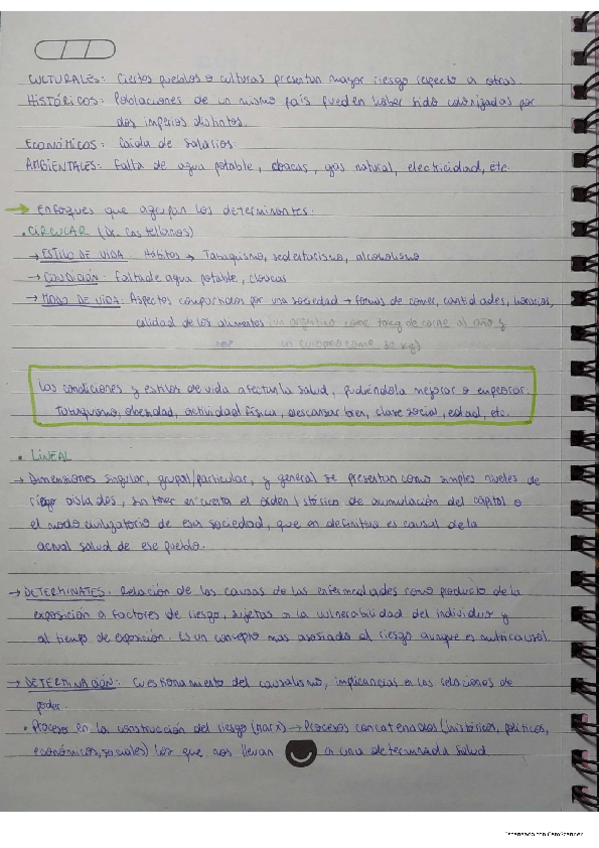 CULTURALES: Ciertos pueblos o culturas presentan mayor riesgo respecto a otras.
HISTÓRICOS: Poblaciones de un mismo país pueden haber sido colonizadas por
dos imperios distintos.
ECONÓMICOS: Caída de salarios.
AMBIENTALES: Falta de agua potable, cloacas, gas natural, electricidad, etc.
→ Enfoques que agrupan los determinantes:
• CIRCULAR (Dr. Castellanos)
→ ESTILO DE VIDA: Hábitos → Tabaquismo, sedentarismo, alcoholismo
→ CONDICIÓN: Falta de agua potable, cloacas
→ MODO DE VIDA: Aspectos compartidos por una sociedad → formas de comer, cantidades, horarios,
calidad de los alimentos un argentino come kg de carne al año y
un europeo come 30 kg)
Las condiciones y estilos de vida afectan la salud, pudiéndola mejorar o empeorar.
Tabaquismo, obesidad, actividad física, descansar bien, clase social, edad, etc.
• LINEAL
→ Dimensiones singular, grupal/particular, y general se presentan como simples niveles de
riesgo aislados, sin tener en cuenta el orden histórico de acumulación del capital o
el modo civilizatorio de esa sociedad, que en definitiva es causal de la
actual salud de ese pueblo.
→ DETERMINATES: Relación de las causas de las enfermedades como producto de la
exposición a factores de riesgo, sujetas a la vulnerabilidad del individuo y
al tiempo de exposición. Es un concepto mas asociado al riesgo aunque es multicausal.
→ DETERMINACIÓN: Cuestionamiento del causalismo, implicancias en las relaciones de
poder.
• Proceso en la construcción del riesgo (marx) → Procesos concatenados (históricos, políticos,
económicos, sociales) los que nos llevan a una determinada salud.